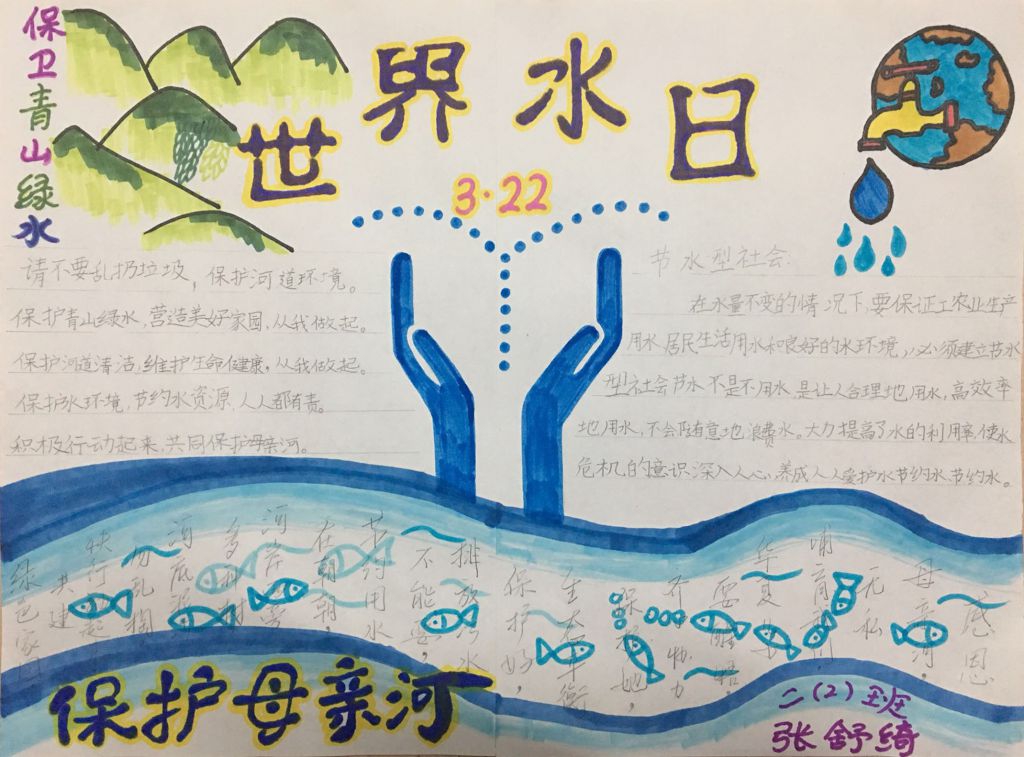 保卫青山绿水
世界水日
3·22
请不要乱扔垃圾，保护河道环境。
保护青山绿水，营造美好家园，从我做起。
保护河道清洁，维护生命健康，从我做起。
保护水环境，节约水资源，人人都有责。
积极行动起来，共同保护母亲河。
节水型社会：
在水量不变的情况下，要保证工农业生产
用水居民生活用水和良好的水环境，必须建立节水
型社会节水不是不用水，是让人合理地用水，高效率
地用水，不会随意地浪费水。大力提高了水的利用率，使水
危机的意识深入人心，养成人人爱护水节约水、节约水。
感恩
母亲河，
无私
哺育
华夏
要醒悟
齐协力
保护她，
生态平衡
保护好，
排放污水
不能要，
节约用水
在朝朝，
河岸
多种树
河底
勿乱
快行
共建
绿色家园
保护母亲河
二（2）班
张舒绮